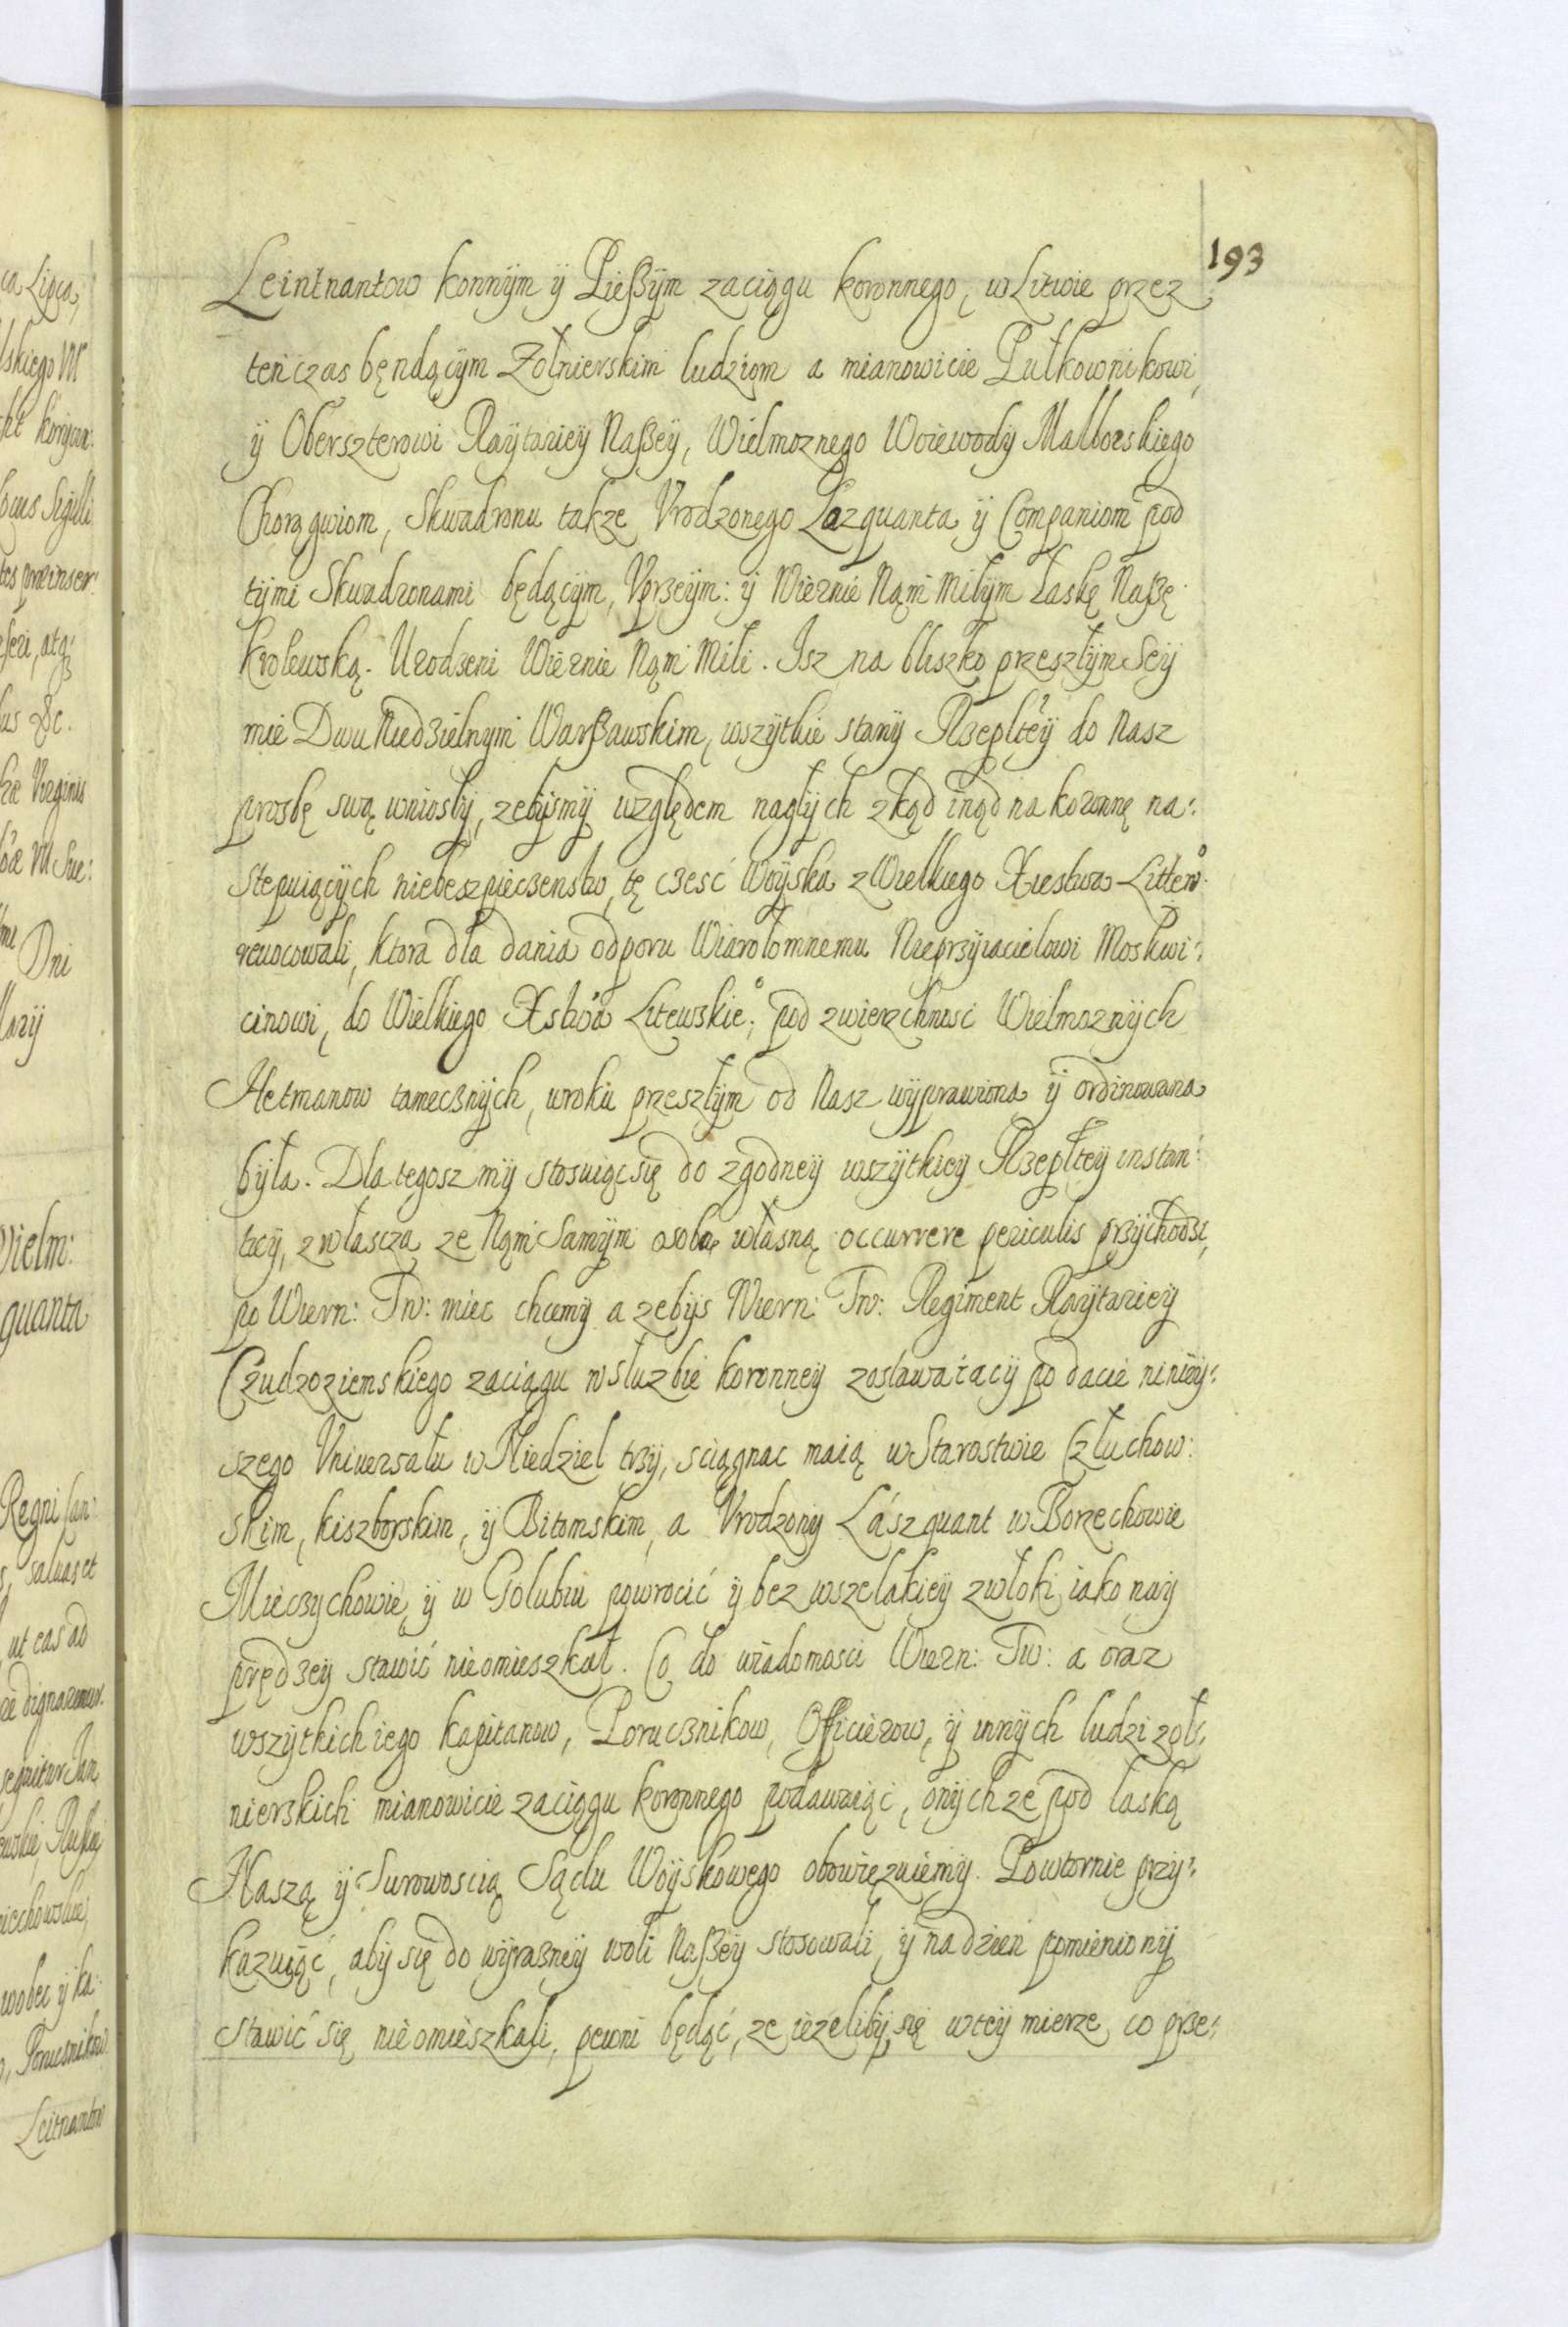 193
Leintnantow konnÿm ÿ Pießÿm zaciągu koronnego, w Litwie przez
ten czas bęndącÿm Zołnierskim ludziom a mianowicie Pułkownikowi,
ÿ Oberszterowi Raÿtariey Naßeÿ, Wielmoznego Woiewodÿ Malborskiego
Chorągwiom, Skwadronu takze Vrodzonego Lazquanta ÿ Companiom pod
tÿmi Skwadronami będącÿm, Vprzeÿm: ÿ Wiernie Nąm Miłÿm Łaskę Naßę
Krolewską. Urodzeni Wiernie Nąm Mili. Isz na bliszko przeszłÿm Seÿ
mie DwuNiedzielnÿm Warßawskim, wszÿtkie stanÿ Rzeplteÿ do Nasz
prosbę swą wniosłÿ, zebÿsmÿ względem nagłÿch zkąd inąd na koronnę na:
stępuiącÿch niebeszpieczenstw, tę czesć Woÿska z Wielkiego Xiestwa Littewº
revocowali, ktora dla dania odporu Wiarołomnemu Nieprzÿiacielowi Moskwi:
cinowi, do Wielkiego Xstwa Litewskieº, pod zwierzchnosć Wielmoznÿch
Hetmanow tamecznÿch, w roku przeszłÿm od Nasz wÿprawiona ÿ ordinowana
bÿła. Dla tegosz mÿ stosuiąc się do zgodneÿ wszÿtkieÿ Rzepłteÿ instan:
tieÿ, zwłascza ze Nąm Samÿm osobą własną occurrere periculis przÿchodzi,
po Wiern: Tw: miec chcemÿ a zebÿs Wiern: Tw: Regiment Raÿtarieÿ
Czudzoziemskiego zaciągu w słuzbie koronneÿ zostawaiacÿ po dacie ninieÿ:
szego Vniuersału w Niedziel trzÿ, sciągnac maią w Starostwie Człuchow:
skim, kiszborskim, ÿ Bitomskim, a Vrodzonÿ Lászquant w Borzechowie
Mieczÿchowie, ÿ w Golubiu powrocić ÿ bez wszelakieÿ zwłoki, iako naÿ
prędzeÿ stawić nieomieszkał. Co do wiadomosci Wiern: Tw: a oraz
wszÿtkich iego kapitanow, Porucznikow, Officierow, ÿ innÿch ludzi zoł:
nierskich mianowicie zaciągu koronnego podawaiąc, onÿch ze pod laską
Naszą ÿ Surowoscią Sądu Woÿskowego obowięzuiemÿ. Powtornie przÿ:
kazuiąć, abÿ się do wÿrazneÿ woli Naßeÿ stosowali, ÿ na dzien pomienionÿ
stawić się nieomieszkali, pewni będąć, ze iezelibÿ się w teÿ mierze co prze: